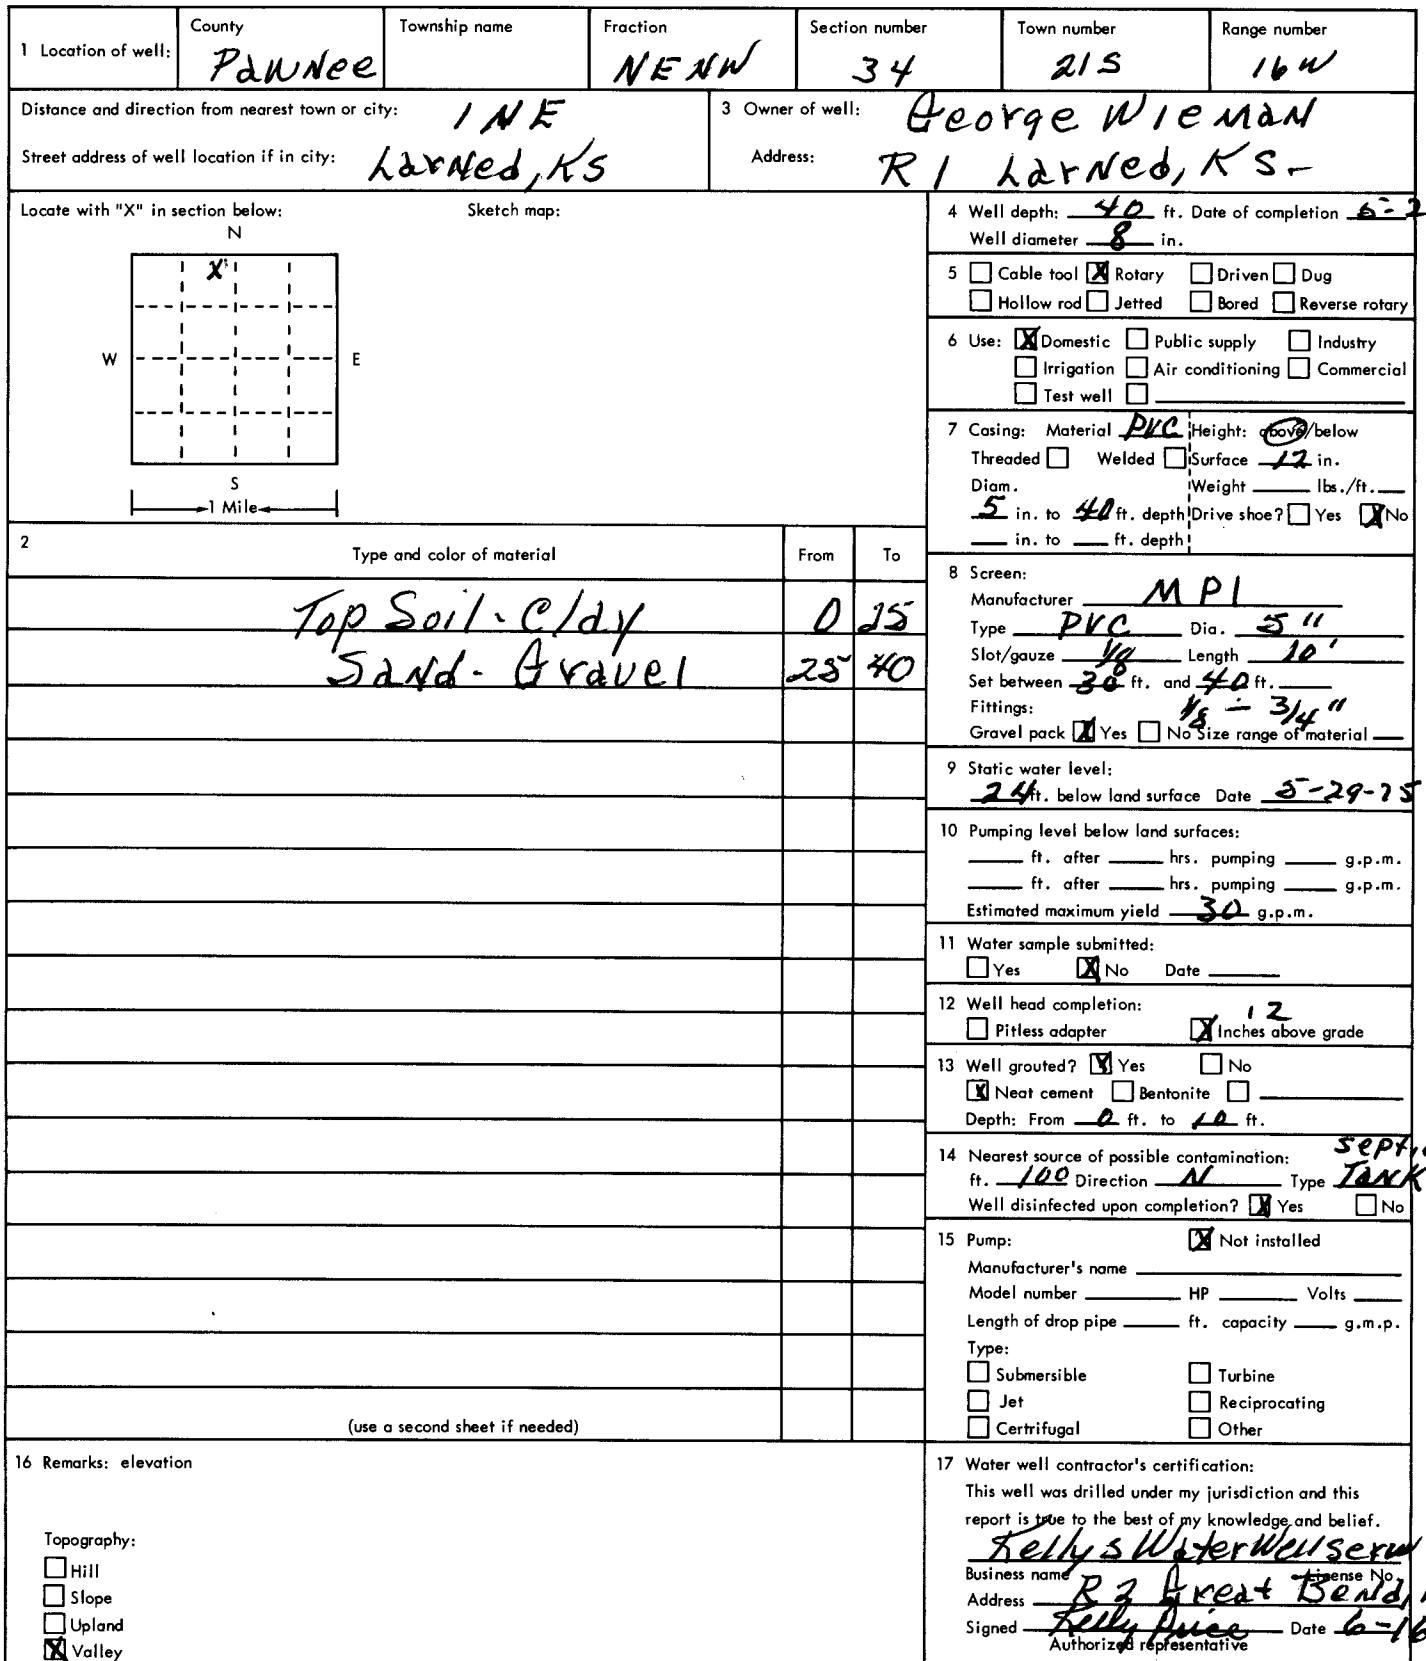 1 Location of well: County Township name Fraction Section number Town number Range number
Pawnee NENW 34 21S 16W
Distance and direction from nearest town or city: 1 NE
Street address of well location if in city: Larned, KS
3 Owner of well: George Wieman
Address: R 1 Larned, KS-
Locate with "X" in section below: Sketch map:
N
X
W E
S
1 Mile
2 Type and color of material From To
Top Soil - Clay 0 25
Sand - Gravel 25 40
(use a second sheet if needed)
16 Remarks: elevation
Topography:
Hill
Slope
Upland
X Valley
4 Well depth: 40 ft. Date of completion 5-2
Well diameter 8 in.
5 Cable tool X Rotary Driven Dug
Hollow rod Jetted Bored Reverse rotary
6 Use: X Domestic Public supply Industry
Irrigation Air conditioning Commercial
Test well
7 Casing: Material PVC Height: above/below
Threaded Welded Surface 12 in.
Diam. Weight lbs./ft.
5 in. to 40 ft. depth Drive shoe? Yes X No
in. to ft. depth
8 Screen:
Manufacturer MPI
Type PVC Dia. 5"
Slot/gauze 1/8 Length 10'
Set between 30 ft. and 40 ft.
Fittings: 1/8 - 3/4"
Gravel pack X Yes No Size range of material
9 Static water level:
24 ft. below land surface Date 5-29-75
10 Pumping level below land surfaces:
ft. after hrs. pumping g.p.m.
ft. after hrs. pumping g.p.m.
Estimated maximum yield 30 g.p.m.
11 Water sample submitted:
Yes X No Date
12 Well head completion: 12
Pitless adapter X Inches above grade
13 Well grouted? X Yes No
X Neat cement Bentonite
Depth: From 0 ft. to 10 ft.
14 Nearest source of possible contamination: Septi
ft. 100 Direction N Type Tank
Well disinfected upon completion? X Yes No
15 Pump: X Not installed
Manufacturer's name
Model number HP Volts
Length of drop pipe ft. capacity g.m.p.
Type:
Submersible Turbine
Jet Reciprocating
Certrifugal Other
17 Water well contractor's certification:
This well was drilled under my jurisdiction and this
report is true to the best of my knowledge and belief.
Kellys Water Well Serv
Business name License No.
Address R 2 Great Bend,
Signed Kelly Price Date 6-16
Authorized representative